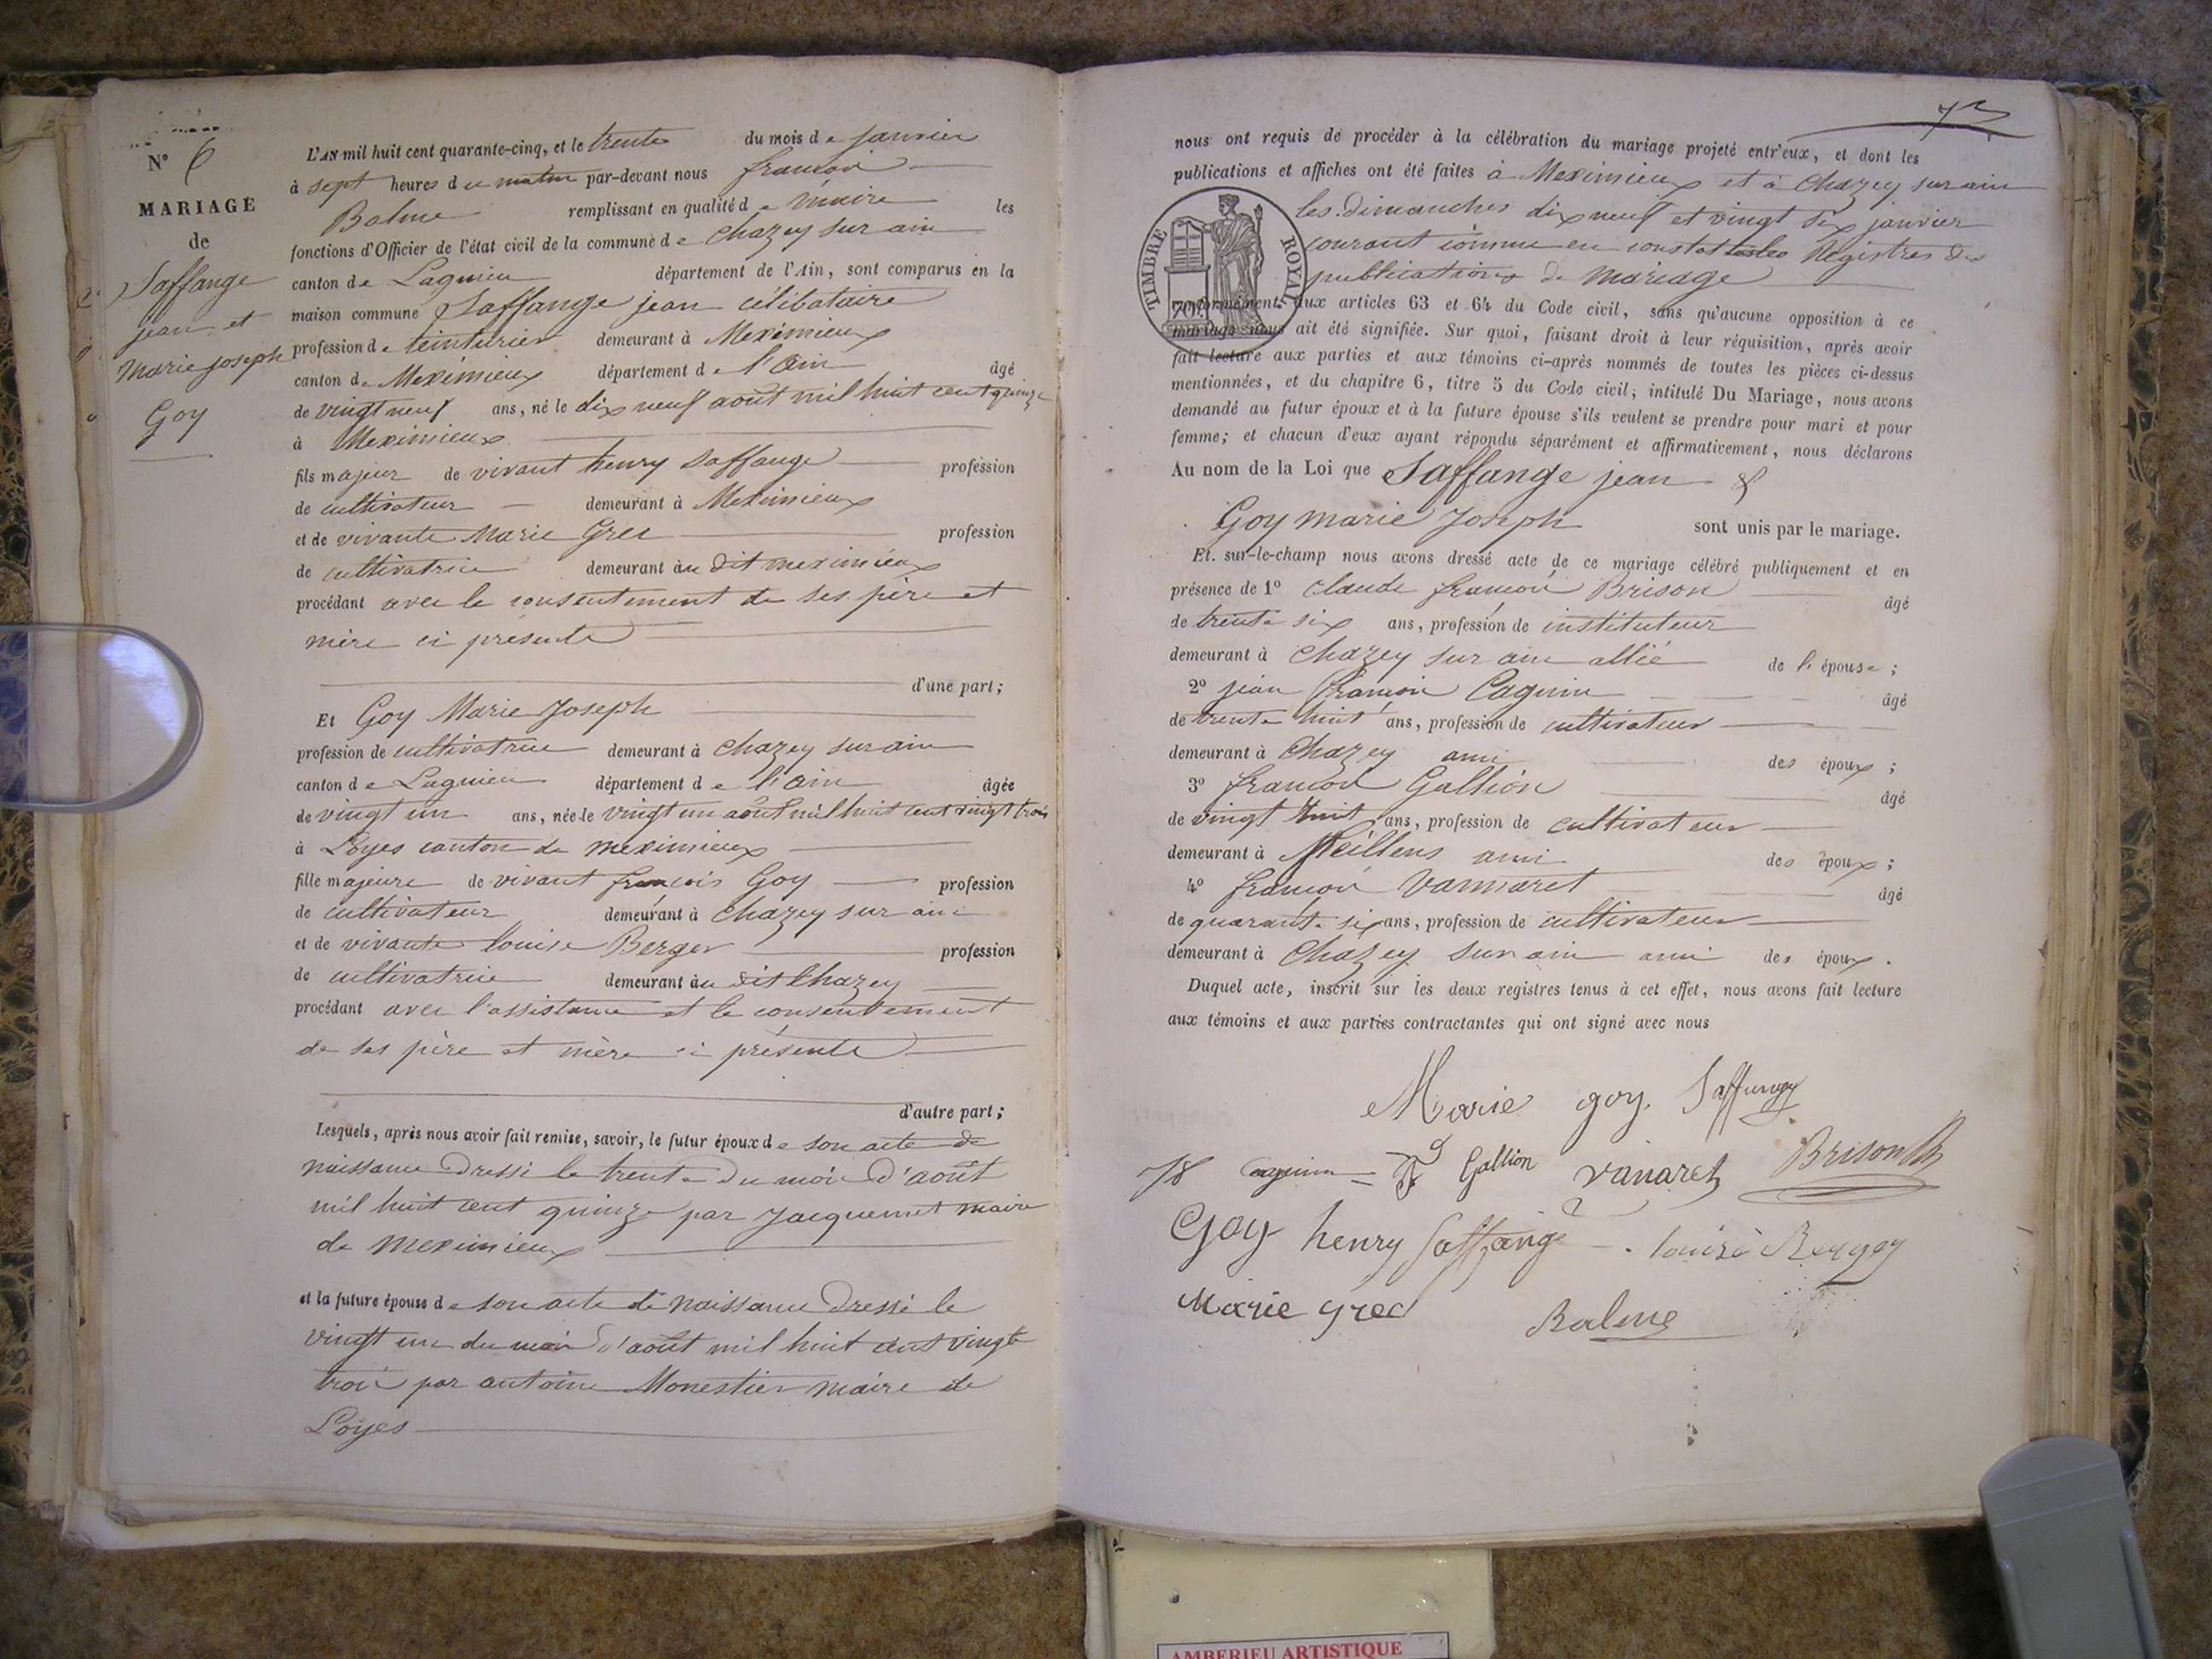 N° 6
MARIAGE
de
Saffange
jean et
Marie Joseph
Goy
L'AN mil huit cent quarante-cinq, et le trente du mois de janvier
à sept heures du matin par-devant nous françois
Balme remplissant en qualité de maire les
fonctions d'Officier de l'état civil de la commune de Chazey sur ain
canton de Lagnieu département de l'Ain, sont comparus en la
maison commune Saffange jean célibataire
profession de teinturier demeurant à Meximieux
canton de Meximieux département de l'ain âgé
de vingt neuf ans, né le dix neuf août mil huit cent quinze
à Meximieux
fils majeur de vivant henry Saffange profession
de cultivateur demeurant à Meximieux
et de vivante Marie Grec profession
de cultivatrice demeurant au dit meximieux
procédant avec le consentement de ses père et
mère ci présents
d'une part;
Et Goy Marie Joseph
profession de cultivatrice demeurant à Chazey sur ain
canton de Lagnieu département de l'ain âgée
de vingt un ans, née le vingt un août mil huit cent vingt trois
à Loyes canton de meximieux
fille majeure de vivant françois Goy profession
de cultivateur demeurant à Chazey sur ain
et de vivante Louise Berger profession
de cultivatrice demeurant au dit Chazey
procédant avec l'assistance et le consentement
de ses père et mère ci présents
d'autre part;
Lesquels, après nous avoir fait remise, savoir, le futur époux de son acte de
naissance dressé le trente du mois d'août
mil huit cent quinze par Jacquemet maire
de meximieux
et la future épouse de son acte de naissance dressé le
vingt un du mois d'août mil huit cent vingt
trois par antoine Monestier maire de
Loyes
nous ont requis de procéder à la célébration du mariage projeté entr'eux, et dont les
publications et affiches ont été faites à Meximieux et à Chazey sur ain
les dimanches dix neuf et vingt six janvier
courant comme en constat les Registres des
publications de mariage
TIMBRE ROYAL
conformément aux articles 63 et 64 du Code civil, sans qu'aucune opposition à ce
mariage nous ait été signifiée. Sur quoi, faisant droit à leur réquisition, après avoir
fait lecture aux parties et aux témoins ci-après nommés de toutes les pièces ci-dessus
mentionnées, et du chapitre 6, titre 5 du Code civil; intitulé Du Mariage, nous avons
demandé au futur époux et à la future épouse s'ils veulent se prendre pour mari et pour
femme; et chacun d'eux ayant répondu séparément et affirmativement, nous déclarons
Au nom de la Loi que Saffange jean &
Goy marie Joseph sont unis par le mariage.
Et sur-le-champ nous avons dressé acte de ce mariage célébré publiquement et en
présence de 1° Claude françois Brison âgé
de trente six ans, profession de instituteur
demeurant à Chazey sur ain allié de l'épouse;
2° jean françois Cagnin âgé
de trente huit ans, profession de cultivateur
demeurant à Chazey ami des époux;
3° françois Gallion âgé
de vingt huit ans, profession de cultivateur
demeurant à ami des époux;
4° françois Vannaret âgé
de quarante six ans, profession de cultivateur
demeurant à Chazey sur ain ami des époux.
Duquel acte, inscrit sur les deux registres tenus à cet effet, nous avons fait lecture
aux témoins et aux parties contractantes qui ont signé avec nous
Marie goy. Saffange
Cagnin Gallion Vanaret Brison
Goy henry Saffange louise Berger
Marie grec Balme
AMBERIEU ARTISTIQUE